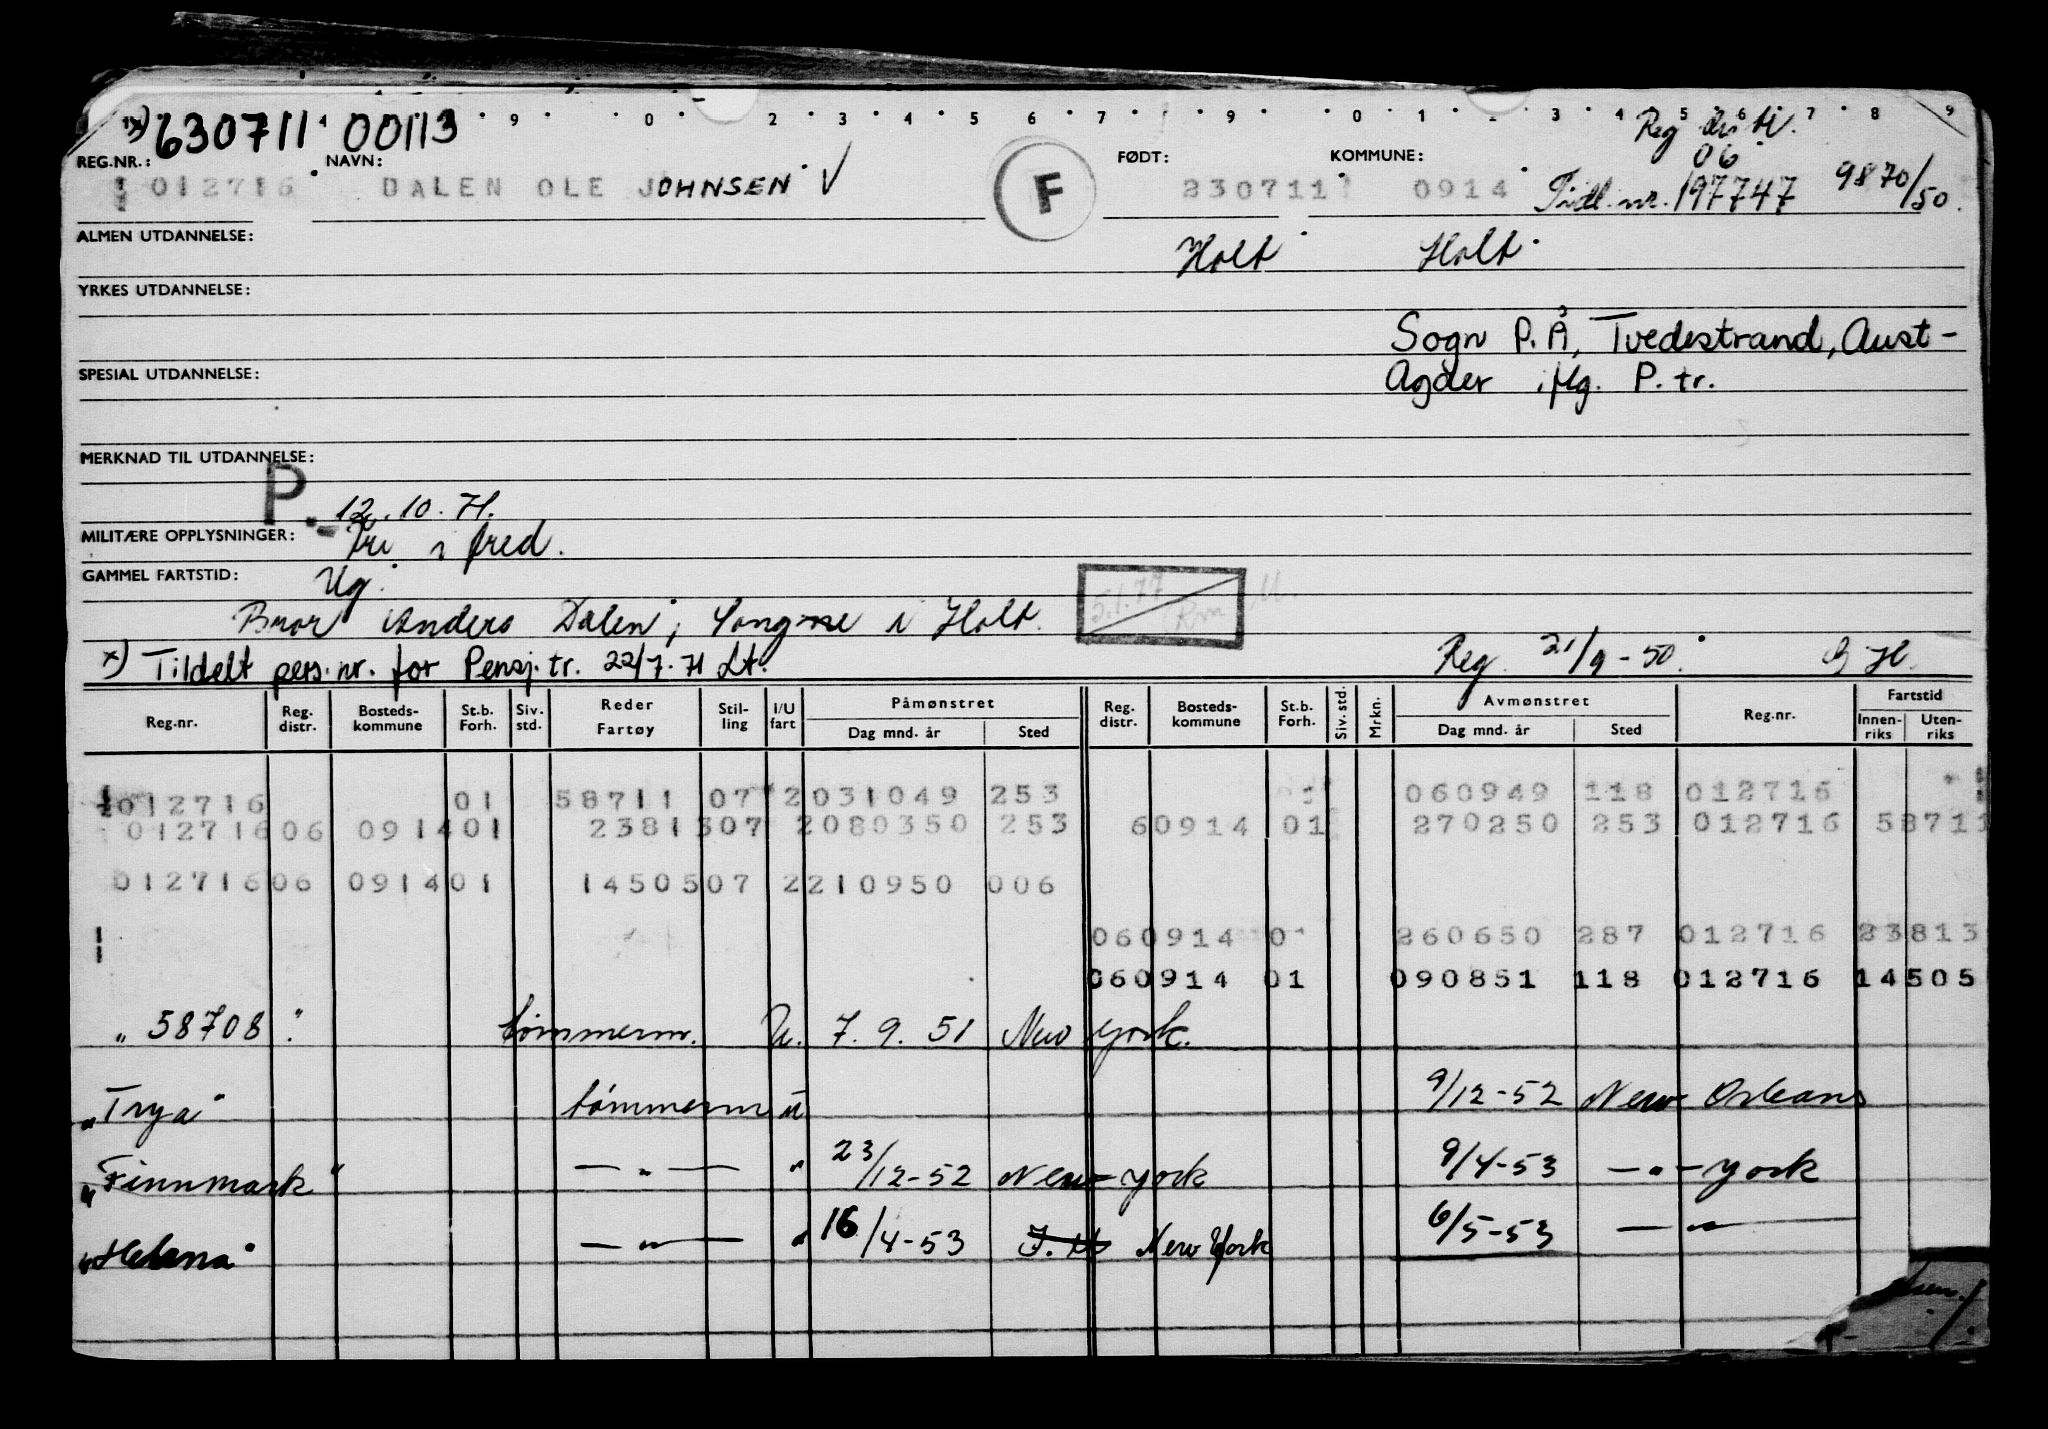 x) 630711 00113
9 0 2 3 4 5 6 7 9 0 1 3 4 5 6 7 8 9
Reg
06
REG.NR.: NAVN: FØDT: KOMMUNE:
012716 DALEN OLE JOHNSEN V F 230711 0914 Tidl. nr. 197747 9870/50.
ALMEN UTDANNELSE: Holt Holt
YRKES UTDANNELSE:
Sogn P.Å, Tvedestrand, Aust-
SPESIAL UTDANNELSE: Agder iflg. P. tr.
MERKNAD TIL UTDANNELSE:
P. 12.10.71.
MILITÆRE OPPLYSNINGER: Fri i fred.
GAMMEL FARTSTID: Ug.
5.1.77
Bror Anders Dalen, Songne i Holt.
x) Tildelt pers.nr. for Pensj.tr. 22/7.71 Lt. Reg. 21/9-50.
Reg.nr. Reg. distr. Bosteds-kommune St.b. Forh. Siv. std. Reder Fartøy Stil-ling I/U fart Påmønstret Dag mnd. år Sted Reg. distr. Bosteds-kommune St.b. Forh. Siv. std. Mrkn. Avmønstret Dag mnd. år Sted Reg.nr. Fartstid Innen-riks Uten-riks
012716 01 58711 07 2 031049 253 1 060949 118 012716
012716 06 0914 01 23813 07 2 080350 253 60914 01 270250 253 012716 58711
012716 06 0914 01 14505 07 2 210950 006
060914 0 260650 287 012716 23813
060914 01 090851 118 012716 14505
„58708" tømmerm. U. 7.9.51 New York.
„Trya" tømmerm u 9/12-52 New-Orleans
„Finnmark" — " — " 23/12-52 New-York 9/4-53 — " — York
„Helena" — " — " 16/4-53 New York 6/5-53 — " —